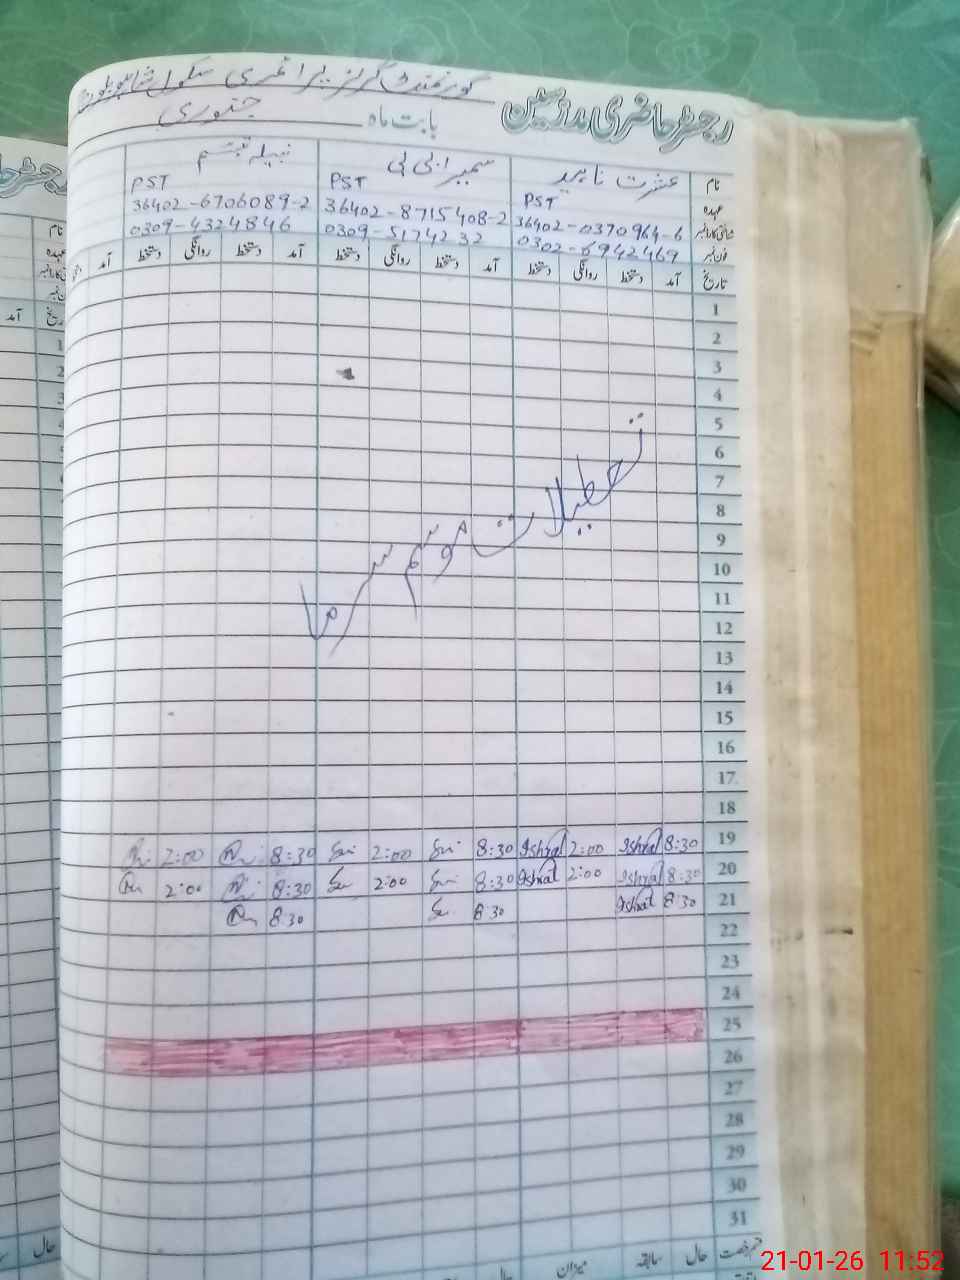 رجسٹر حاضری مدرسین گورنمنٹ گرلز پرائمری سکول
بابت ماہ جنوری
نام عشرت ناہید سمیرا بی بی نبیلہ تبسم
عہدہ PST PST PST
شناختی کارڈ نمبر 36402-0370964-6 36402-8715408-2 36402-6706089-2
فون نمبر 0302-6942469 0309-5174232 0309-4324846
تاریخ آمد دستخط روانگی دستخط آمد دستخط روانگی دستخط آمد دستخط روانگی دستخط آمد
1
2
3
4
5
6
7
8
9
10
11
12
13
14
15
16
17
18
تعطیلات موسم سرما
19 8:30 Ishrat 2:00 Ishrat 8:30 2:00 8:30 2:00
20 8:30 Ishrat 2:00 Ishrat 8:30 2:00 8:30 2:00
21 8:30 Ishrat 8:30 8:30
22
23
24
25
26
27
28
29
30
31
قسم رخصت حال سابقہ میزان حال
رجسٹر
نام
عہدہ
تاریخ آمد
1
2
3
4
حال
21-01-26 11:52